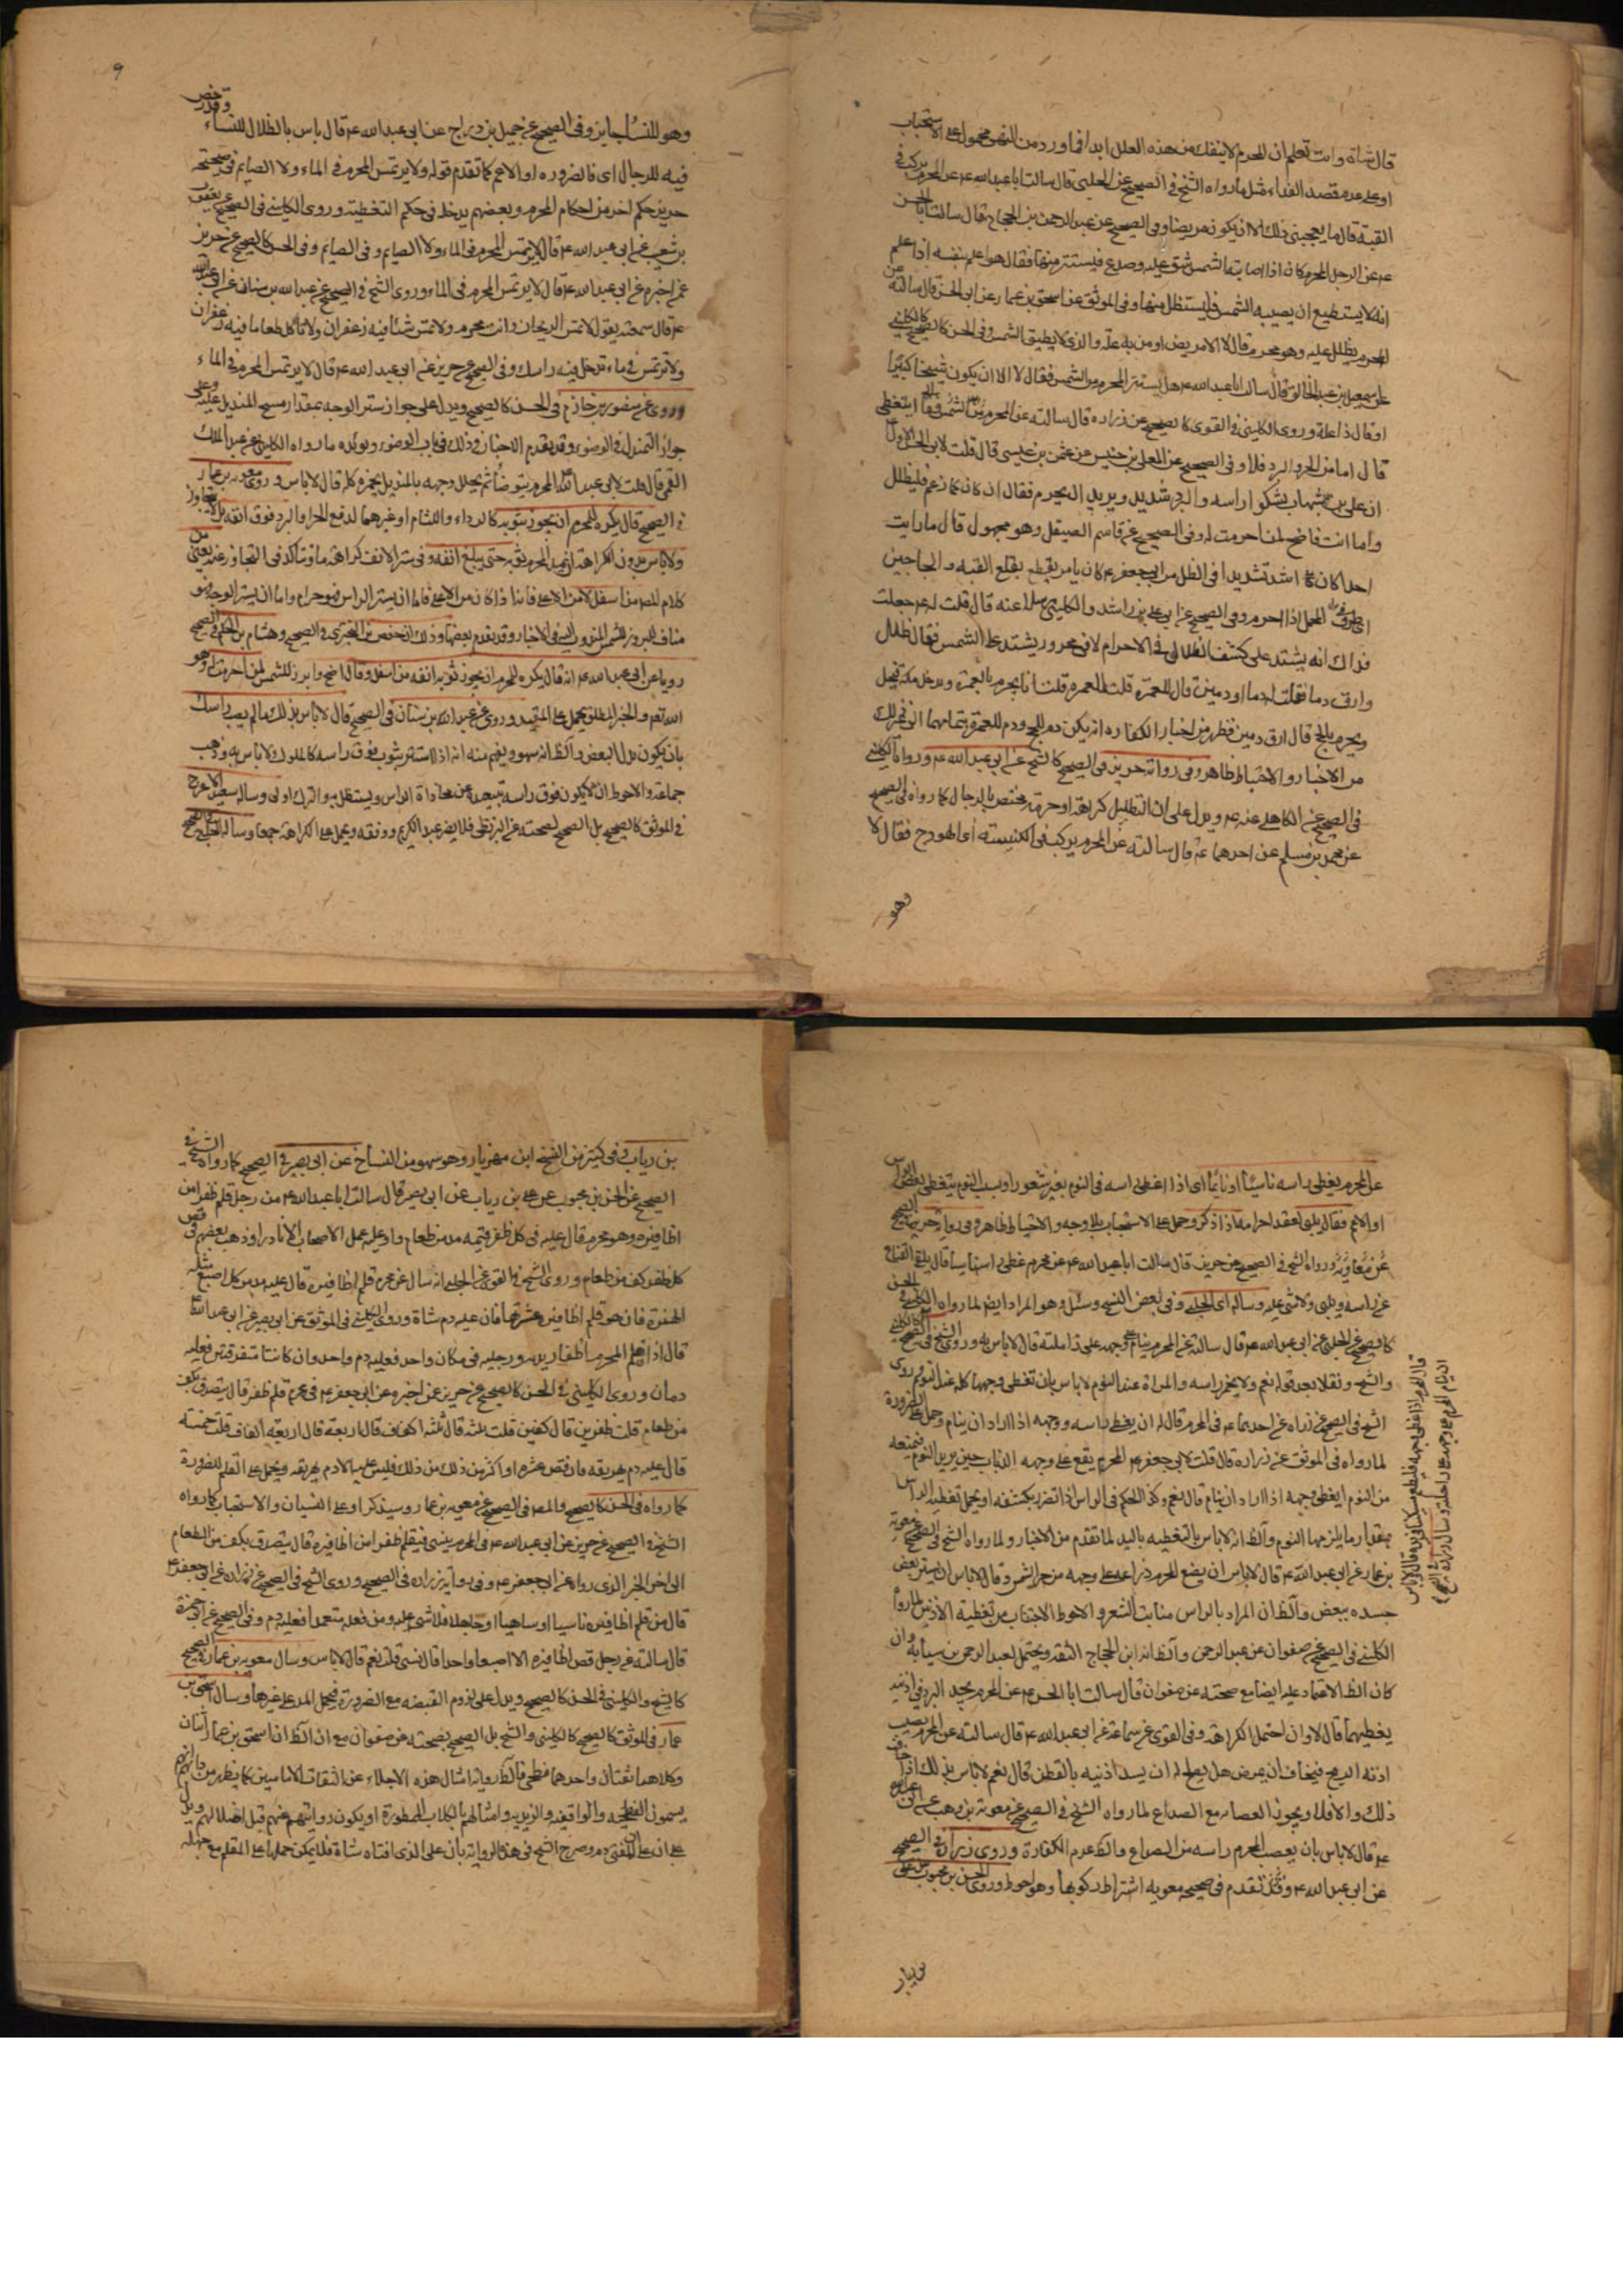 قال شاة وانت تعلم ان المحرم لا ينفك من هذه العلل ابدا فما ورد من النهى محمول على الاستحباب
او على عدم مقصد الفداء مثل ما رواه الشيخ في الصحيح عن الحلبى قال سالت ابا عبد الله ع عن المحرم يركب في
القبة قال ما يعجبنى ذلك الا ان يكون مريضا وفى الصحيح عن عبد الرحمن بن الحجاج قال سالت ابا الحسن
ع عن الرجل المحرم كان اذا اصابته الشمس شق عليه وصدع فيستتر منها فقال هو اعلم بنفسه اذا علم
انه لا يستطيع ان يصيبه الشمس فليستظل منها وفى الموثق عن اسحق بن عمار عن ابى الحسن قال سالته عن
المحرم يظلل عليه وهو محرم قال لا الا مريض او من به علة والذى لا يطيق الشمس وفى الحسن كالصحيح كالكلينى
عن اسمعيل بن عبد الخالق قال سالت ابا عبد الله ع هل يستتر المحرم من الشمس فقال لا الا ان يكون شيخا كبيرا
او قال ذا علة وروى الكلينى في القوى كالصحيح عن زراره قال سالته عن المحرم ايتغطى
قال اما من الحر والبرد فلا وفى الصحيح عن المعلى بن خنيس عن عثمن بن عيسى قال قلت لابى الحسن الاول
ان على بن شهاب يشكو راسه والبرد شديد ويريد ان يحرم فقال ان كان كما زعم فليظلل
واما انت فاضح لمن احرمت له وفى الصحيح عن قاسم الصيقل وهو مجهول قال ما رايت
احدا كان اشد تشديدا فى الظل من ابى جعفر ع كان يامر بقطع القبة والحاجبين
اذا احرم وفى الصحيح عن على بن راشد والكلينى عنه قال قلت له ع جعلت
فداك انه يشتد على كشف الظلال في الاحرام لانى محرور يشتد على الشمس فقال ظلل
وارق دما فقلت له دما او دمين قال للعمرة قلت للعمره قلت انا نحرم بالعمرة وندخل مكة فنحل
ونحرم بالحج قال ارق دمين فظهر من اخبار الكفاره ان يكون دم للحج ودم للعمرة
من الاخبار والاحتياط ظاهر وفى رواية حريز فى الصحيح كالشيخ عن ابى عبد الله ع ورواها الكلينى
فى الصحيح عن الكاهلى عنه ع ويدل على ان التظليل كراهة او حرمة مختص بالرجال كما رواه فى الصحيح
عن محمد بن مسلم عن احدهما ع قال سالته عن المحرم يركب فى الكنيسة اى الهودج فقال لا
وهو
٩
وهو للنساء جايز وفى الصحيح عن جميل بن دراج عن ابى عبد الله ع قال لا باس بالظلال للنساء وقد رخص
فيه للرجال اى فى الضروره او الاعم كما تقدم قوله ولا يرتمس المحرم فى الماء ولا الصايم فى صحيحة
حريز حكم اخر من احكام المحرم وبعضهم يدخله فى حكم التغطية وروى الكلينى فى الصحيح عن يعقوب
بن شعيب عن ابى عبد الله ع قال لا يرتمس المحرم فى الماء ولا الصايم وفى الحسن كالصحيح عن حريز
عمن اخبره عن ابى عبد الله ع قال لا يرتمس المحرم فى الماء وروى الشيخ فى الصحيح عن عبد الله بن سنان عن ابى عبد الله
ع قال سمعته يقول لا تمس الريحان وانت محرم ولا تمس شيئا فيه زعفران ولا تاكل طعاما فيه زعفران
ولا ترتمس فى ماء تدخل فيه راسك وفى الصحيح عن حريز عن ابى عبد الله ع قال لا يرتمس المحرم فى الماء
وروى عن منصور بن حازم فى الحسن كالصحيح ويدل على جواز ستر الوجه بمقدار مسح المنديل عليه وعلى
جواز التمندل فى الوضوء وقد تقدم الاخبار فى ذلك فى باب الوضوء ويؤيده ما رواه الكلينى عن عبد الملك
القمى قال قلت لابى عبد الله ع المحرم يتوضأ ثم يجلل وجهه بالمنديل يخمره كله قال لا باس وروى معويه بن عمار
فى الصحيح قال يكره للمحرم ان يجوز بثوبه كالرداء واللثام او غيرهما لدفع الحر او البرد فوق انفه
ولا باس ان يمد المحرم ثوبه حتى يبلغ انفه
كلام المصنف من اسفل لا من الاعلى فانه اذا كان من الاعلى فاما ان يستر الراس فهو حرام واما ان يستر الوجه فهو
مناف للبروز للشمس المندوب اليه فى الاخبار وقد تقدم بعضها وذلك ان حفص بن البخترى فى الصحيح وهشام بن الحكم فى الصحيح
رويا عن ابى عبد الله ع انه قال يكره للمحرم ان يجوز ثوبه انفه من اسفل وقال اضح وابرز للشمس لمن احرمت له وهو
الله تعم والخبر المطلق يحمل على المقيد وروى عن عبد الله بن سنان فى الصحيح قال لا باس بذلك ما لم يصب راسك
بان يكون بدل البعض والظ انه سهو ويفهم منه انه اذا استتر بثوب فوق راسه كالمدلوك لا باس به وذهب
جماعة والاحوط ان لا يكون فوق راسه ويستظل به والترك اولى وساله سعيد الاعرج
فى الموثق كالصحيح بل الصحيح لصحته عن البزنطى فلا يضر عبد الكريم ووقفه وحمل على الكراهة جمعا وساله الحلبى فى الصحيح
عن المحرم يغطى راسه ناسيا او نايما اى اذا غطى راسه فى النوم بغير شعور او بسبب النوم يتغطى بعض الراس
او الاعم فقال يلبى لعقد احرامه اذا ذكر وحمل على الاستحباب بلا وجه والاحتياط ظاهر وفى رواية حريز فى الصحيح
ورواه الشيخ فى الصحيح عن حريز قال سالت ابا عبد الله ع عن محرم غطى راسه ناسيا قال يلقى القناع
عن راسه ويلبى ولا شئ عليه وساله اى الحلبى وفى بعض النسخ وسئل وهو المراد ايضا لما رواه الكلينى فى الحسن
كالصحيح عن الحلبى عن ابى عبد الله ع قال سالته عن المحرم ينام على وجهه على زاملته قال لا باس به وروى الشيخ فى الصحيح كالكلينى
والشيخ ونقلا بعد قوله نعم ولا يخمر راسه والمراة عند النوم لا باس بان تغطى وجهها كله عند النوم وروى
الشيخ فى الصحيح عن زراه عن احدهما ع فى المحرم قال له ان يغطى راسه ووجهه اذا اراد ان ينام وحمل على الضرورة
لما رواه فى الموثق عن زراره قال قلت لابى جعفر ع المحرم يقع على وجهه الذباب حين يريد النوم فيمنعه
من النوم ايغطى وجهه اذا اراد ان ينام قال نعم وكذا الحكم فى الراس اذا تضرر بكشفه او يحمل تغطية الراس
بمقدار ما يلزمها النوم والظ انه لا باس بالتغطيه باليد لما تقدم من الاخبار ولما رواه الشيخ فى الصحيح عن معويه
بن عمار عن ابى عبد الله ع قال لا باس ان يضع المحرم ذراعه على وجهه من حر الشمس وقال لا باس ان يستر بعض
جسده ببعض والظ ان المراد بالراس منابت الشعر والاحوط الاجتناب من تغطية الاذنين لما رواه
الكلينى فى الصحيح عن صفوان عن عبد الرحمن والظ انه ابن الحجاج الثقه ويحتمل لعبد الرحمن بن سيابة وان
كان الظ الاعتماد عليه ايضا مع صحته عن صفوان قال سالت ابا الحسن ع عن المحرم يجد البرد فى اذنيه
يغطيهما قال لا وان احتمل الكراهة وفى القوى عن سماعة عن ابى عبد الله ع قال سالته عن المحرم يصيب
اذنه الريح فيخاف ان يمرض هل يصلح له ان يسد اذنيه بالقطن قال نعم لا باس بذلك اذا خاف
ذلك والا فلا ويجوز العصابه مع الصداع لما رواه الشيخ فى الصحيح عن معوية بن وهب عن ابى عبد الله
ع قال لا باس بان يعصب المحرم راسه من الصداع والظ عدم الكفارة وروى زرارة فى الصحيح
عن ابى عبد الله ع وقد تقدم فى صحيحه معويه اشتراط ركوبها وهو احوط وروى الحسن بن محبوب عن على
قال المحرم اذا غطى وجهه فليطعم مسكينا فى يده قال لا باس
ان ينام المحرم على وجهه على راحلته وسال زراره فى الصحيح
بن رياب وفى كثير من النسخ ابن مهزيار وهو سهو من النساخ عن ابى بصير فى الصحيح كما رواه الشيخ فى
الصحيح عن الحسن بن محبوب عن على بن رياب عن ابى بصير قال سالت ابا عبد الله ع من رجل قلم ظفرا من
اظافيره وهو محرم قال عليه فى كل ظفر قيمة مد من طعام وعليه عمل الاصحاب الا نادرا وذهب بعضهم فى قص
كل ظفر كف من طعام وروى الشيخ فى القوى عن الحلبى انه سال عن محرم قلم اظافيره قال عليه مد من كل اصبع مثله
فان هو قلم اظافيره عشرتها فان عليه دم شاة وروى الكلينى فى الموثق عن ابى بصير عن ابى عبد الله ع
قال اذا قلم المحرم اظفار يديه ورجليه فى مكان واحد فعليه دم واحد وان كانتا متفرقتين فعليه
دمان وروى الكلينى فى الحسن كالصحيح عن حريز عن اخبره عن ابى جعفر ع فى محرم قلم ظفر قال يتصدق بكف
من طعام قلت ظفرين قال كفين قلت ثلثة قال ثلثة اكفاف قال اربعة قال اربعة اكفاف قلت خمسة
قال عليه دم يهريقه فان قص عشره او اكثر من ذلك فليس عليه الا دم يهريقه ويحمل على القلم للضرورة
كما رواه فى الحسن كالصحيح والمصـ فى الصحيح عن معويه بن عمار وسيذكر او على النسيان والاستحباب كما رواه
الشيخ فى الصحيح عن حريز عن ابى عبد الله ع فى المحرم ينسى فيقلم ظفرا من اظافيره قال يتصدق بكف من الطعام
الى اخر الخبر الذى رواه عن ابى جعفر ع وفى رواية زراره فى الصحيح وروى الشيخ فى الصحيح عن زراره عن ابى جعفر ع
قال من قلم اظافيره ناسيا او ساهيا او جاهلا فلا شئ عليه ومن فعله متعمدا فعليه دم وفى الصحيح عن ابى حمزة
قال سالته عن رجل قص اظافيره الا اصبعا واحدا قال نسى قلت نعم قال لا باس وسال معويه بن عمار فى الصحيح
كالشيخ والكلينى فى الحسن كالصحيح ويدل على لزوم القبضه مع الضرورة فيحمل المد على غيرها وسال اسحق بن
عمار فى الموثق كالصحيح كالكلينى والشيخ بل الصحيح لصحته عن صفوان مع ان الظ ان اسحق بن عمار اثنان
وكلاهما ثقتان واحدهما فطحى فالظ رواية امثال هذه الاجلاء عن الثقات الاماميين كما يظهر من حالهم انهم
يسمون الفطحيه والواقفيه والزيديه وامثالهم بالكلاب الممطورة او يكون روايتهم عنهم قبل اضلالهم ويدل
على ان على المفتى دم وصرح الشيخ فى هذه الرواية بان على الذى افتاه شاة فلا يمكن حملها على المقلم مع جهله